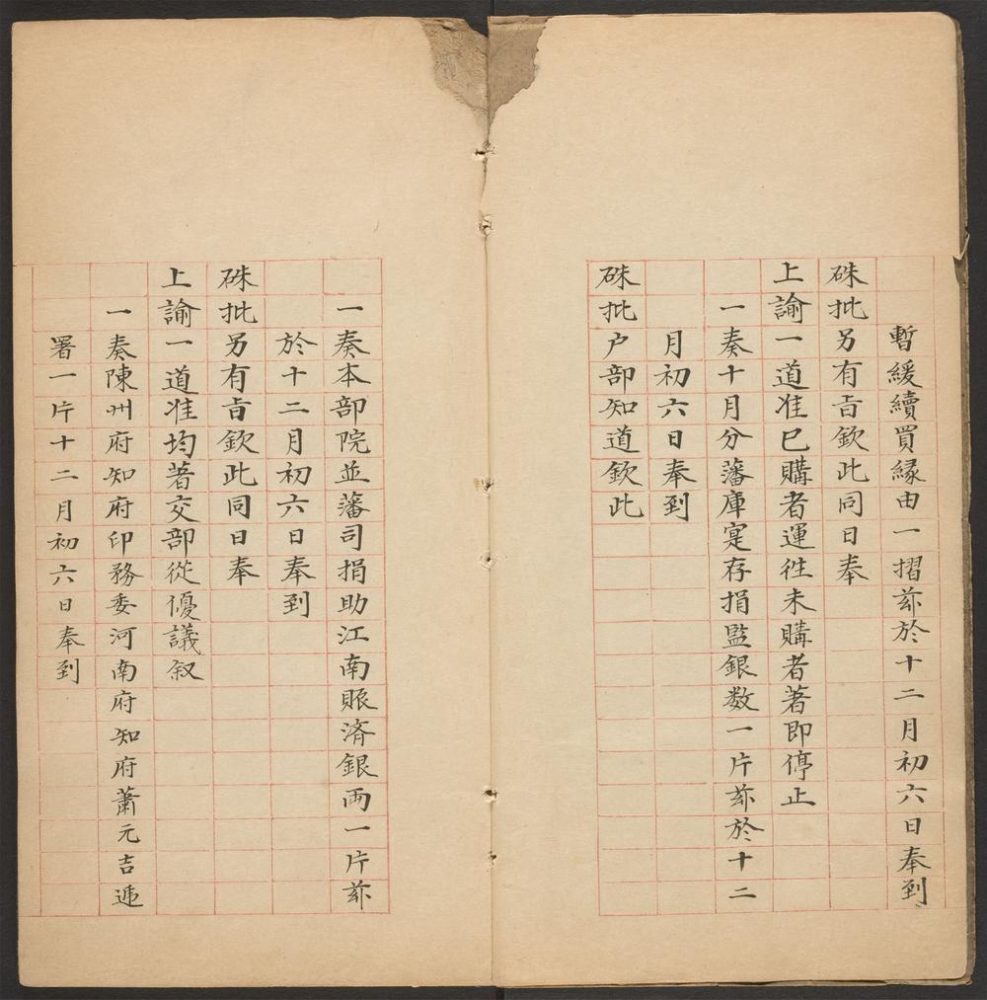 暫緩續買緣由一摺茲於十二月初六日奉到
硃批另有旨欽此同日奉
上諭一道准已購者運往未購者著即停止
一奏十月分藩庫寔存捐監銀数一片茲於十二
月初六日奉到
硃批户部知道欽此
一奏本部院並藩司捐助江南賑濟銀兩一片茲
於十二月初六日奉到
硃批另有旨欽此同日奉
上諭一道准均著交部從優議叙
一奏陳州府知府印務委河南府知府蕭元吉逓
署一片十二月初六日奉到